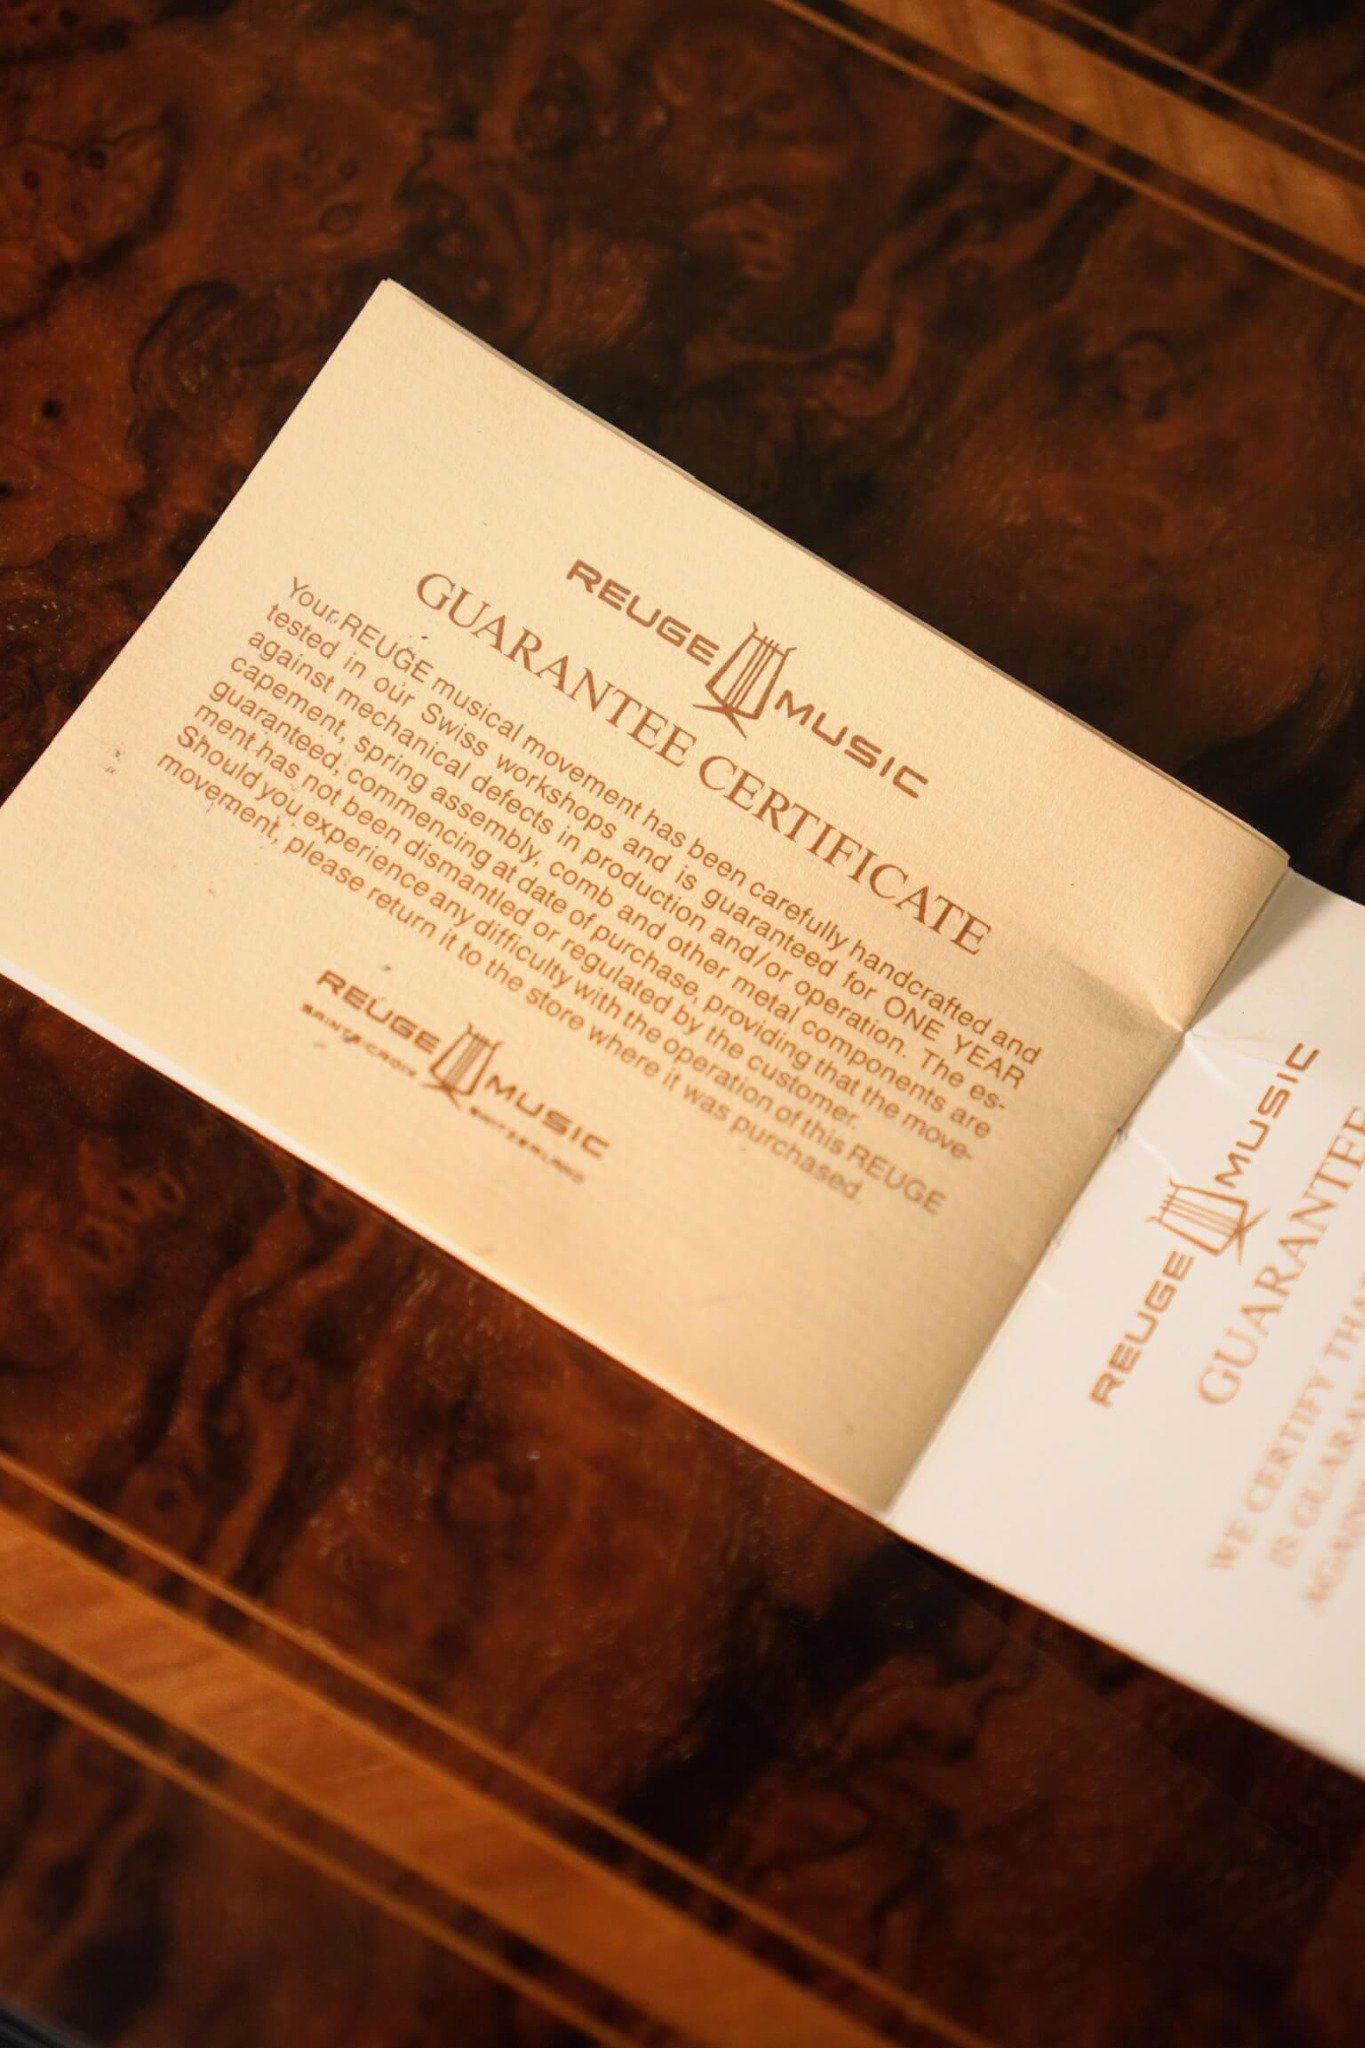 REUGE MUSIC
GUARANTEE CERTIFICATE
Your REUGE musical movement has been carefully handcrafted and
tested in our Swiss workshops and is guaranteed for ONE YEAR
against mechanical defects in production and/or operation. The es-
capement, spring assembly, comb and other metal components are
guaranteed, commencing at date of purchase, providing that the move-
ment has not been dismantled or regulated by the customer.
Should you experience any difficulty with the operation of this REUGE
movement, please return it to the store where it was purchased.
REUGE MUSIC
SAINTE-CROIX SWITZERLAND
REUGE MUSIC
GUARANTEE
WE CERTIFY THA
IS GUARAN
AGAIN